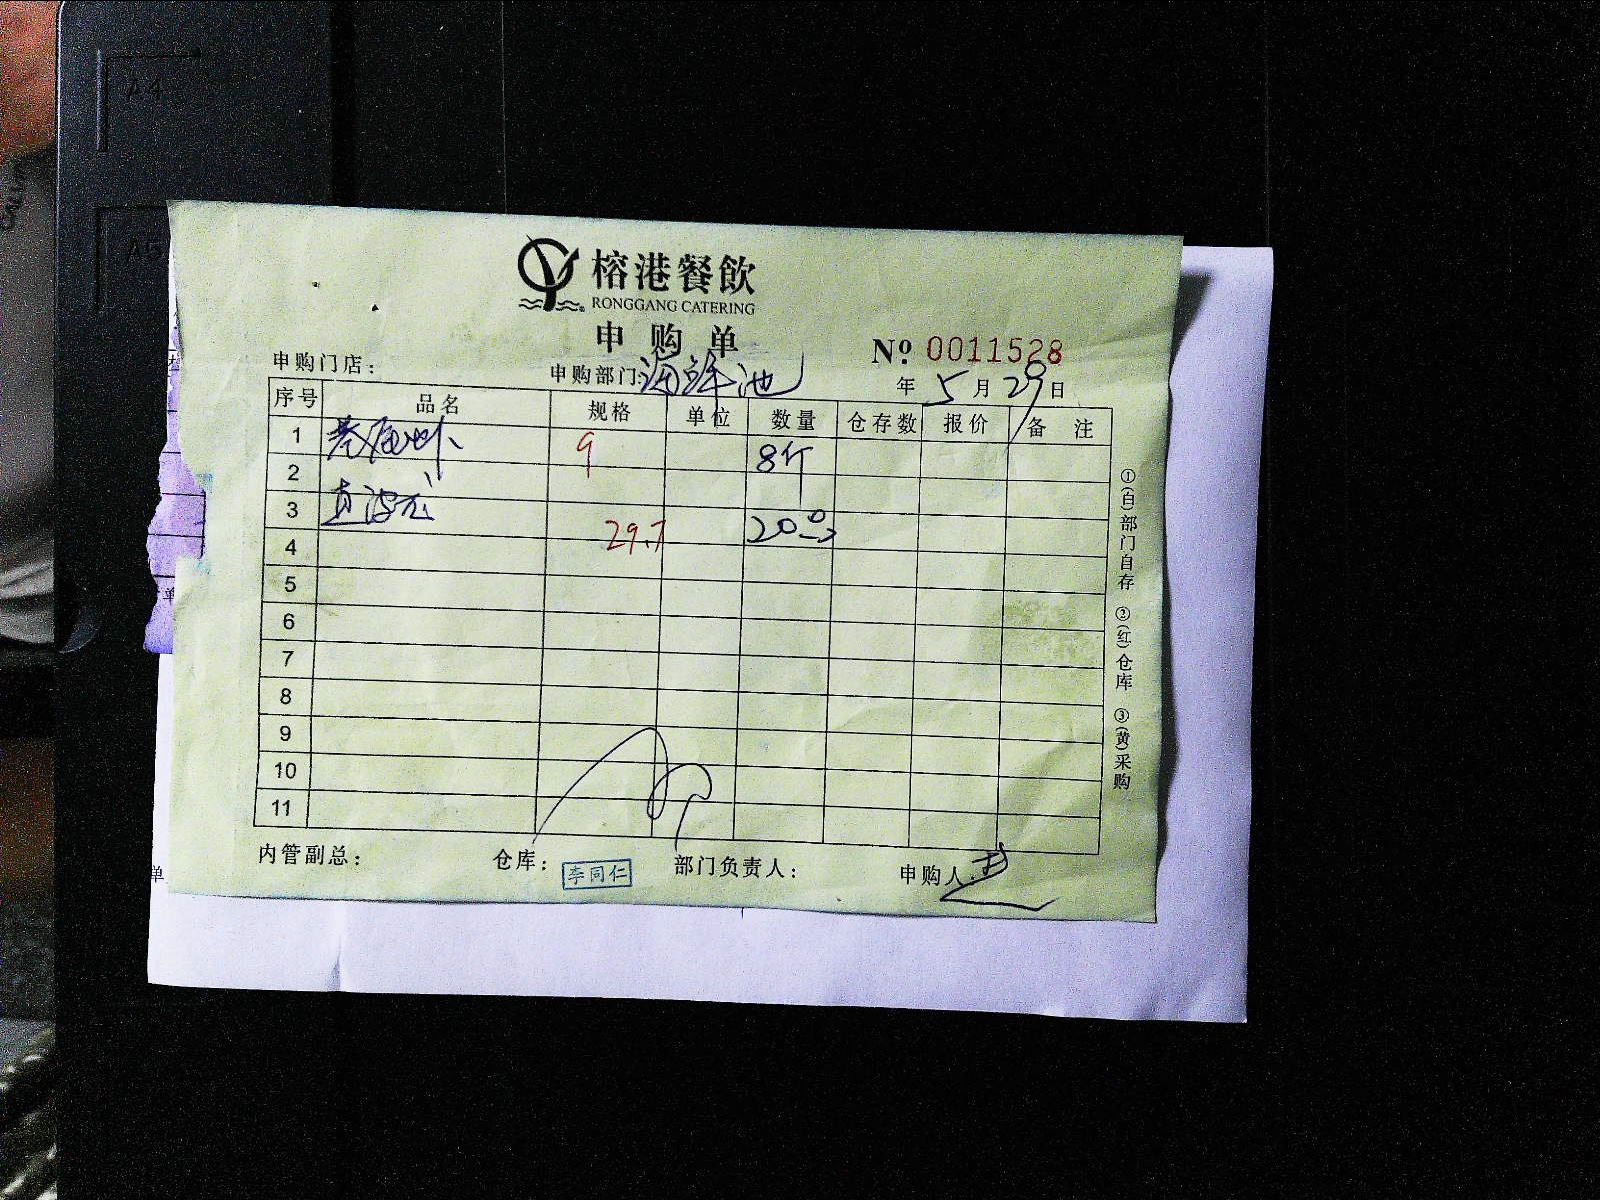 A4
A5
榕港餐飲
RONGGANG CATERING
申购单
Nº 0011528
申购门店：
申购部门：海鲜池
年 5月29日
序号 品名 规格 单位 数量 仓存数 报价 备注
1 9 8斤
2
3 29.7
4
5
6
7
8
9
10
11
内管副总： 仓库： 李同仁 部门负责人： 申购人：
①(白)部门自存 ②(红)仓库 ③(黄)采购
单
单